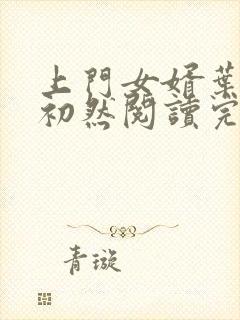 上門女婿葉
初然閱讀完
青璇